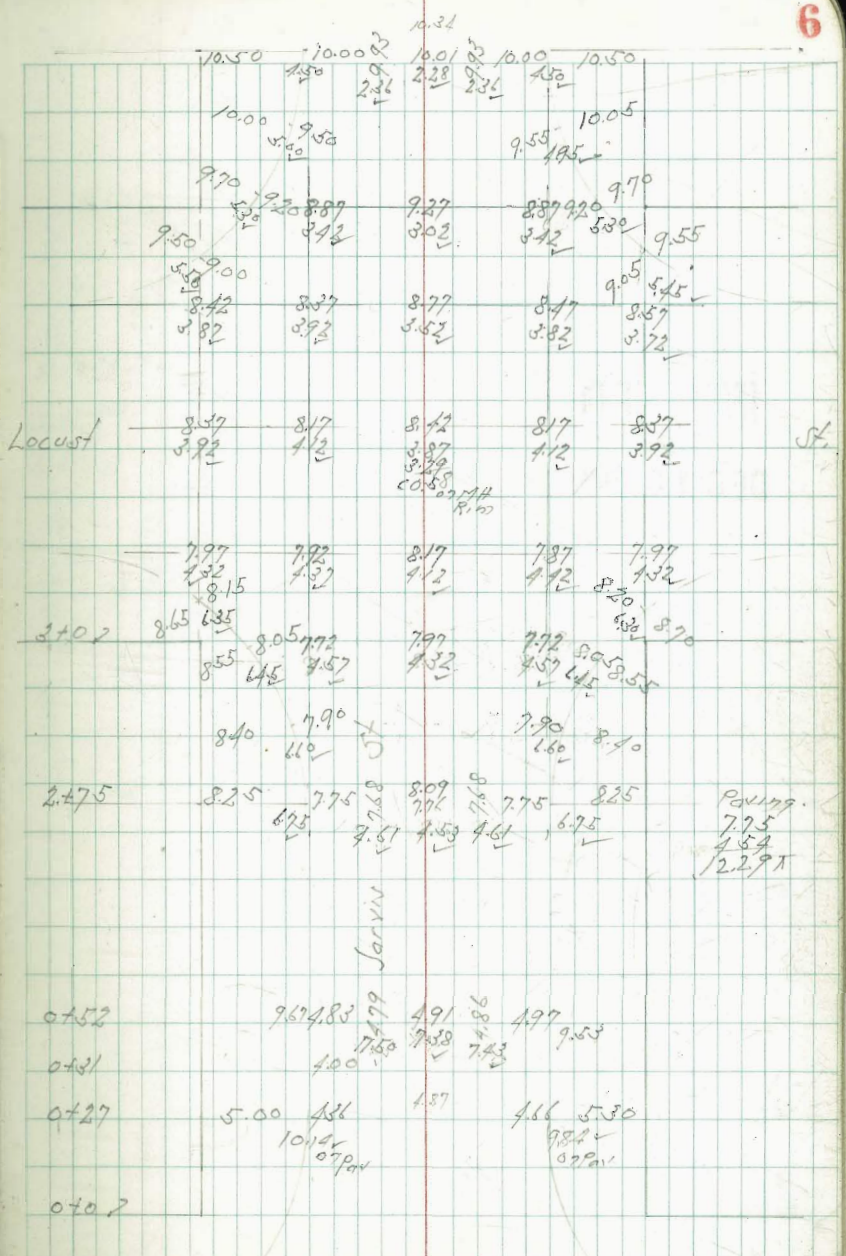 6
10.34
10.50 10.00 9.93 10.01 9.93 10.00 10.50
4.50 2.36 2.28 2.36 4.50
10.00 9.50 10.05
5.00 9.55 4.95
9.70 9.20 8.87 9.27 8.87 9.20 9.70
5.30 3.42 3.02 3.42 5.30
9.50 9.00 9.55
5.50 9.05 5.45
8.42 8.37 8.77 8.47 8.57
3.87 3.92 3.52 3.82 3.72
Locust 8.37 8.17 8.42 8.17 8.37 St.
3.92 4.12 3.87 4.12 3.92
3.29
c0.58
on MH
Rim
7.97 7.92 8.17 7.87 7.97
4.32 4.37 4.12 4.42 4.32
8.15 8.20
8.65 6.35 6.30 8.70
8.05 7.72 7.97 7.72 8.05
8.55 6.45 4.57 4.32 4.57 6.45 8.55
8.40 7.90 7.90 8.40
6.60 6.60
2+75 8.25 7.75 7.68 8.09 7.68 7.75 8.25
7.76
6.75 4.61 4.53 4.61 6.75
Paving.
7.75
4.54
12.29 π
Jarvis St
0+52 9.67 4.83 4.79 4.91 4.86 4.97 9.53
7.50 7.38 7.43
0+31 4.00
0+27 5.00 4.36 4.87 4.66 5.30
10.14 9.84
on Pav on Pav